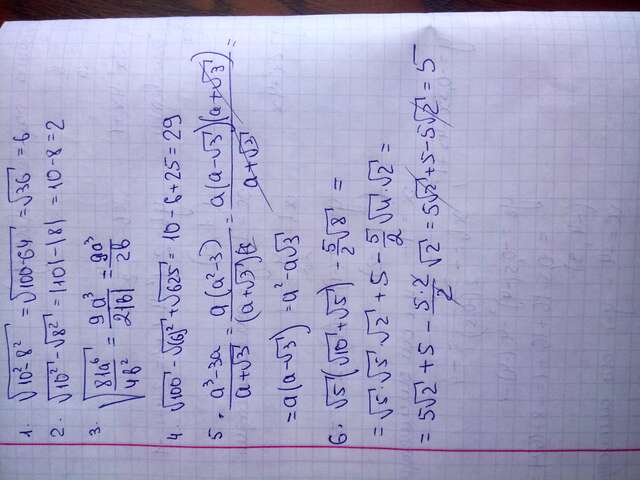 1. √(10²-8²) = √(100-64) = √36 = 6
2. √10² - √8² = |10|-|8| = 10-8 = 2
3. √(81a⁶/4b²) = 9a³/2|b| = 9a³/2b
4. √100 - √(6)² + √625 = 10-6+25 = 29
5. (a³-3a)/(a+√3) = a(a²-3)/(a+√3) = a(a-√3)(a+√3)/(a+√3) =
= a(a-√3) = a²-a√3
6. √5(√10+√5) - 5/2 √8 =
= √5·√5·√2 + 5 - 5/2 √4·√2 =
= 5√2 + 5 - (5·2)/2 √2 = 5√2+5-5√2 = 5